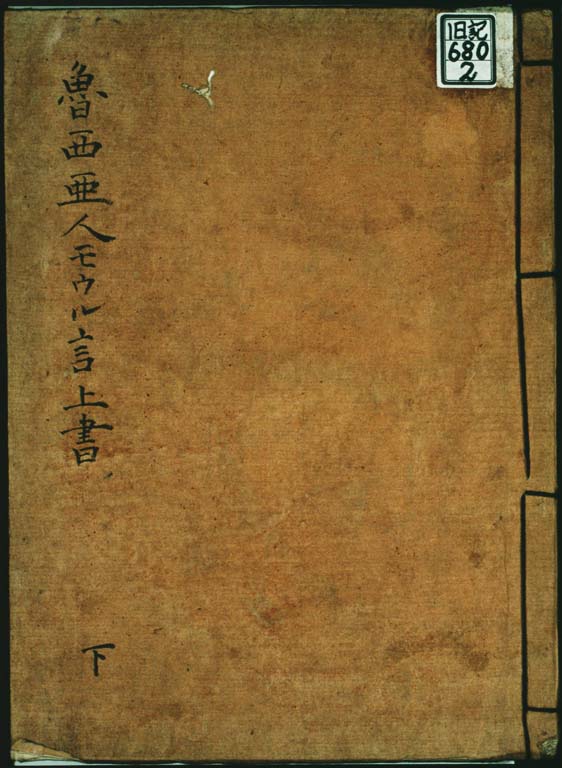 魯西亜人モウル言上書
下
旧記
680
2